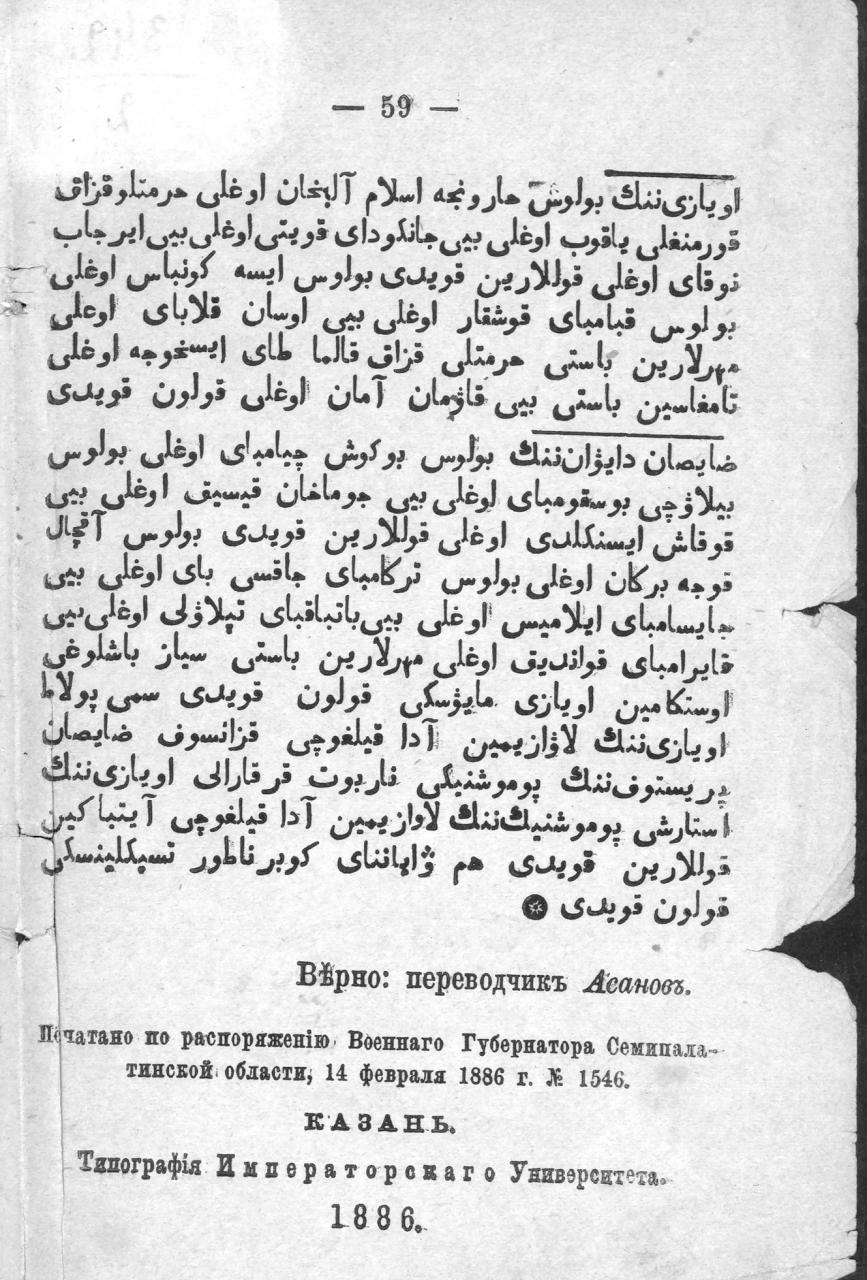 — 59 —
اویازی‌ننك بولوش حارونجه اسلام آلبخان اوغلی حرمتلو قزاق
قورمنغلی یاقوب اوغلی بیی جانکودای قویتی اوغلی بیی ایرجاب
نوقای اوغلی قوللارین قویدی بولوس ایسه کونباس اوغلی
بولوس قبامبای قوشقار اوغلی بیی اوسان قلابای اوغلی
مهرلارین باستی حرمتلی قزاق قالما طای ایسخوجه اوغلی
تامغاسین باستی بیی قاژمان آمان اوغلی قولون قویدی
ضایصان دایۋان‌ننك بولوس بوکوش چیامبای اوغلی بولوس
بیلاۋچی بوسقومبای اوغلی بیی جوماخان قیسیق اوغلی بیی
قوقاش ایسنکلدی اوغلی قوللارین قویدی بولوس آقچال
قوجه برکان اوغلی بولوس ترکامبای جاقسی بای اوغلی بیی
جایسامبای ایلامیس اوغلی بیی باتباقبای تپلاۋلی اوغلی بیی
قایرامبای قواندیق اوغلی مهرلارین باستی سیاز باشلوغی
اوستکامین اویازی مایۋسکی قولون قویدی سمی پولاط
اویازی‌ننك لاۋازیمین آدا قیلغوچی قزانسوف ضایصان
پریستوف‌ننك پوموشنیکی ناربوت قرقارالی اویازی‌ننك
استارشی پوموشنیك‌ننك لاوازیمین آدا قیلغوچی آیتباکین
قوللارین قویدی هم ۋایاننای کوبرناطور تسیکلینسکی
قولون قویدی
Вѣрно: переводчикъ Асановъ.
Печатано по распоряженію Военнаго Губернатора Семипала-
тинской области, 14 февраля 1886 г. № 1546.
КАЗАНЬ.
Типографія Императорскаго Университета.
1886.